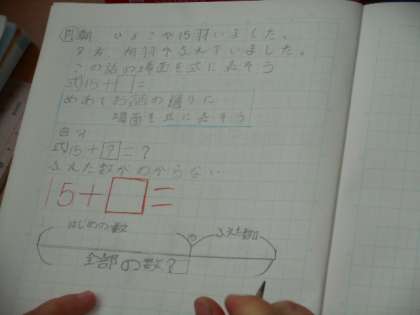 問題 ひよこが15羽いました。
夕方、何羽かふえていました。
この話の場面を式に表そう
式15+□=
めあてお話の通りに
場面を式に表そう
自分
式15+?=?
ふえた数がわからない
15+□=
はじめの数 ふえた数□
全部の数?